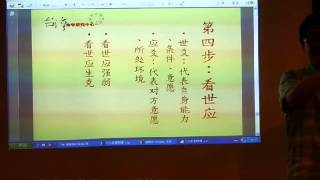 第四步：看世应
•世爻：代表自身能力
、条件、意愿
•应爻：代表对方意愿
、所处环境
•看世应强弱
•看世应生克